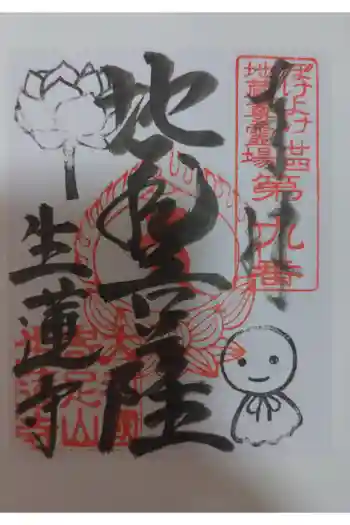 奉拝
ぼけよけ廿四
地蔵尊霊場
第九番
地蔵菩薩
生蓮寺